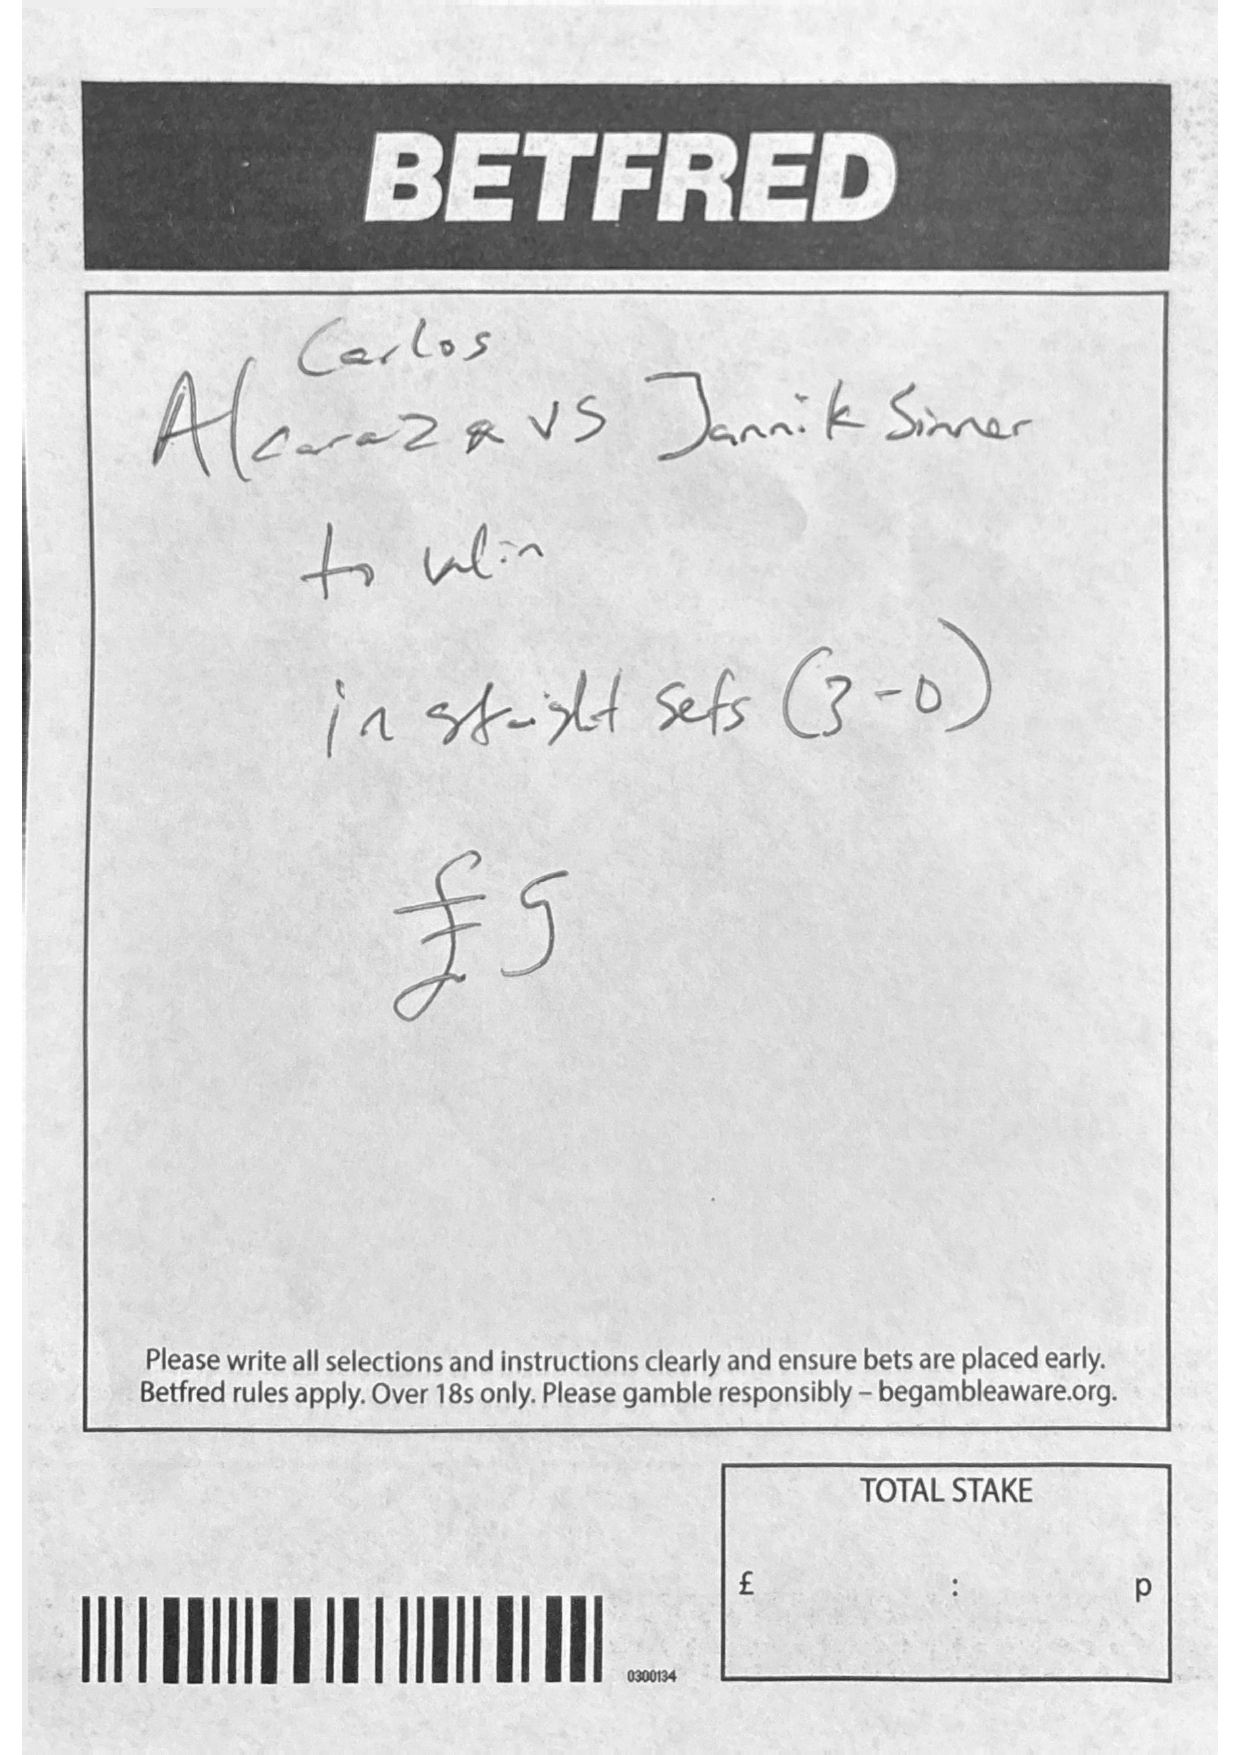 BETFRED
Carlos
Alcaraz vs Jannik Sinner
to win
in straight sets (3-0)
£5
Please write all selections and instructions clearly and ensure bets are placed early.
Betfred rules apply. Over 18s only. Please gamble responsibly – begambleaware.org.
TOTAL STAKE
£ : p
0300134